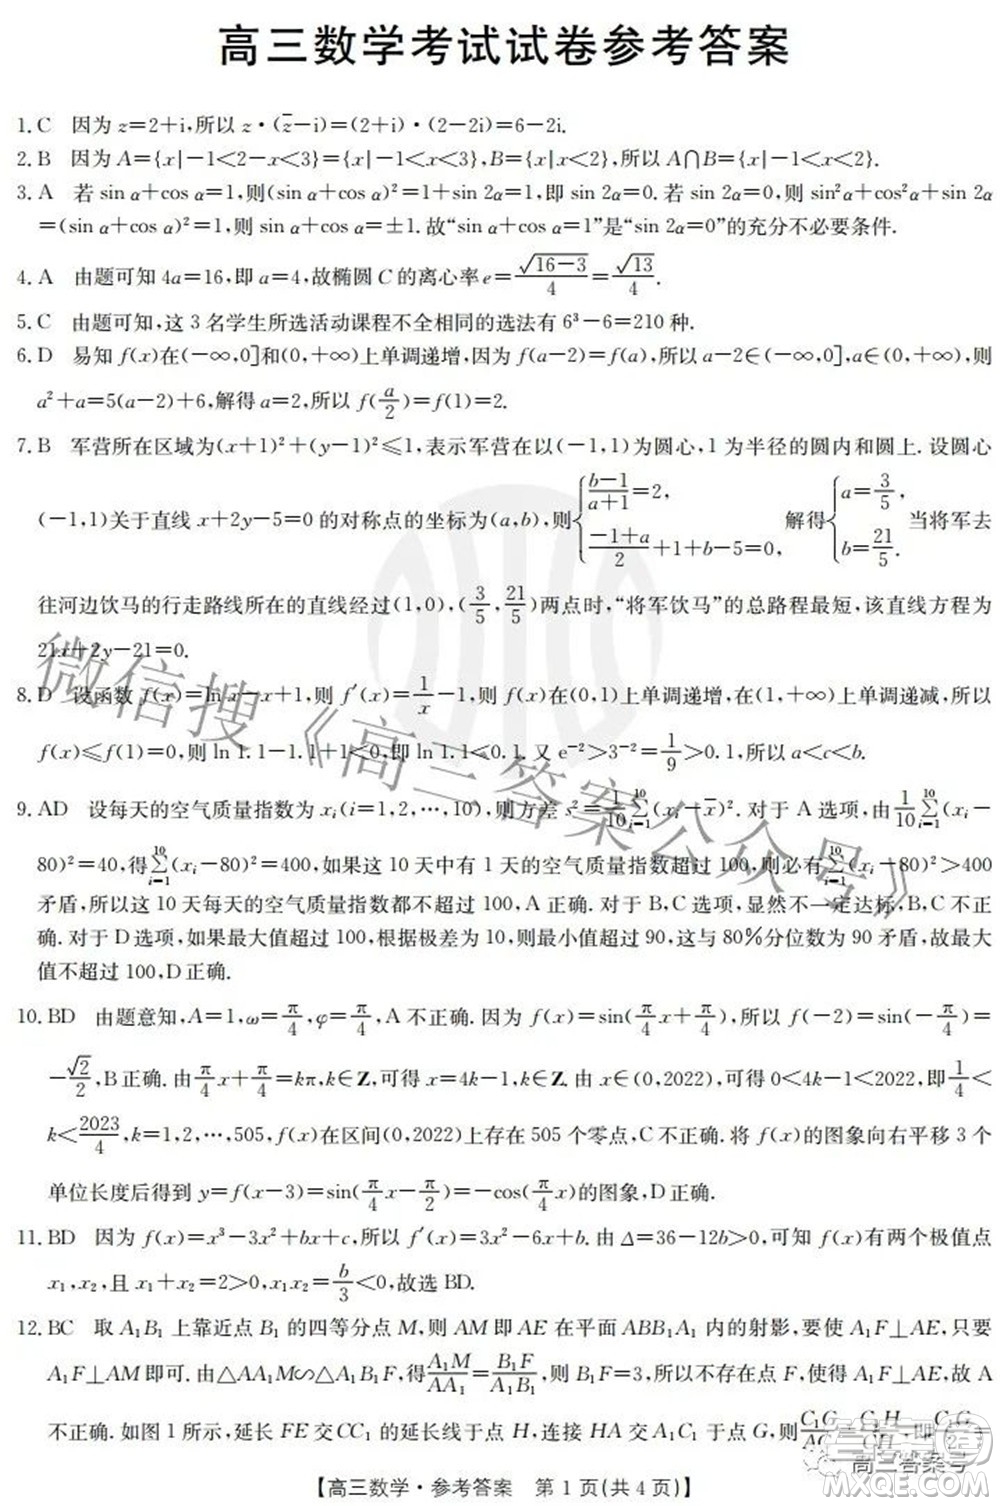 高三数学考试试卷参考答案
1. C 因为 z=2+i,所以 z·(z̄-i)=(2+i)·(2-2i)=6-2i.
2. B 因为 A={x|-1<2-x<3}={x|-1<x<3},B={x|x<2},所以 A∩B={x|-1<x<2}.
3. A 若 sin α+cos α=1,则(sin α+cos α)²=1+sin 2α=1,即 sin 2α=0. 若 sin 2α=0,则 sin²α+cos²α+sin 2α
=(sin α+cos α)²=1,则 sin α+cos α=±1. 故“sin α+cos α=1”是“sin 2α=0”的充分不必要条件.
4. A 由题可知 4a=16,即 a=4,故椭圆 C 的离心率 e=√(16-3)/4=√13/4.
5. C 由题可知,这 3 名学生所选活动课程不全相同的选法有 6³-6=210 种.
6. D 易知 f(x)在(-∞,0]和(0,+∞)上单调递增,因为 f(a-2)=f(a),所以 a-2∈(-∞,0],a∈(0,+∞),则
a²+a=5(a-2)+6,解得 a=2,所以 f(a/2)=f(1)=2.
7. B 军营所在区域为(x+1)²+(y-1)²≤1,表示军营在以(-1,1)为圆心,1 为半径的圆内和圆上. 设圆心
(-1,1)关于直线 x+2y-5=0 的对称点的坐标为(a,b),则{(b-1)/(a+1)=2, (-1+a)/2+1+b-5=0, 解得{a=3/5, b=21/5. 当将军去
往河边饮马的行走路线所在的直线经过(1,0),(3/5,21/5)两点时,“将军饮马”的总路程最短,该直线方程为
21x+2y-21=0.
8. D 设函数 f(x)=ln x-x+1,则 f′(x)=1/x-1,则 f(x)在(0,1)上单调递增,在(1,+∞)上单调递减,所以
f(x)≤f(1)=0,则 ln 1.1-1.1+1<0,即 ln 1.1<0.1. 又 e⁻²>3⁻²=1/9>0.1,所以 a<c<b.
9. AD 设每天的空气质量指数为 xᵢ(i=1,2,…,10),则方差 s²=1/10 ∑_{i=1}^{10}(xᵢ-x̄)². 对于 A 选项,由 1/10 ∑_{i=1}^{10}(xᵢ-
80)²=40,得∑_{i=1}^{10}(xᵢ-80)²=400,如果这 10 天中有 1 天的空气质量指数超过 100,则必有∑_{i=1}^{10}(xᵢ-80)²>400
矛盾,所以这 10 天每天的空气质量指数都不超过 100,A 正确. 对于 B,C 选项,显然不一定达标,B,C 不正
确. 对于 D 选项,如果最大值超过 100,根据极差为 10,则最小值超过 90,这与 80%分位数为 90 矛盾,故最大
值不超过 100,D 正确.
10. BD 由题意知,A=1,ω=π/4,φ=π/4,A 不正确. 因为 f(x)=sin(π/4 x+π/4),所以 f(-2)=sin(-π/4)=
-√2/2,B 正确. 由 π/4 x+π/4=kπ,k∈Z,可得 x=4k-1,k∈Z. 由 x∈(0,2022),可得 0<4k-1<2022,即 1/4
<k<2023/4,k=1,2,…,505,f(x)在区间(0,2022)上存在 505 个零点,C 不正确. 将 f(x)的图象向右平移 3 个
单位长度后得到 y=f(x-3)=sin(π/4 x-π/2)=-cos(π/4 x)的图象,D 正确.
11. BD 因为 f(x)=x³-3x²+bx+c,所以 f′(x)=3x²-6x+b. 由 Δ=36-12b>0,可知 f(x)有两个极值点
x₁,x₂,且 x₁+x₂=2>0,x₁x₂=b/3<0,故选 BD.
12. BC 取 A₁B₁ 上靠近点 B₁ 的四等分点 M,则 AM 即 AE 在平面 ABB₁A₁ 内的射影,要使 A₁F⊥AE,只要
A₁F⊥AM 即可. 由△AA₁M∽△A₁B₁F,得 A₁M/AA₁=B₁F/A₁B₁,则 B₁F=1/3,所以不存在点 F,使得 A₁F⊥AE,故 A
不正确. 如图 1 所示,延长 FE 交 CC₁ 的延长线于点 H,连接 HA 交 A₁C₁ 于点 G,则
【高三数学·参考答案 第 1 页(共 4 页)】
微信搜《高三答案公众号》
高三答案号
答案圈
MXQE.COM